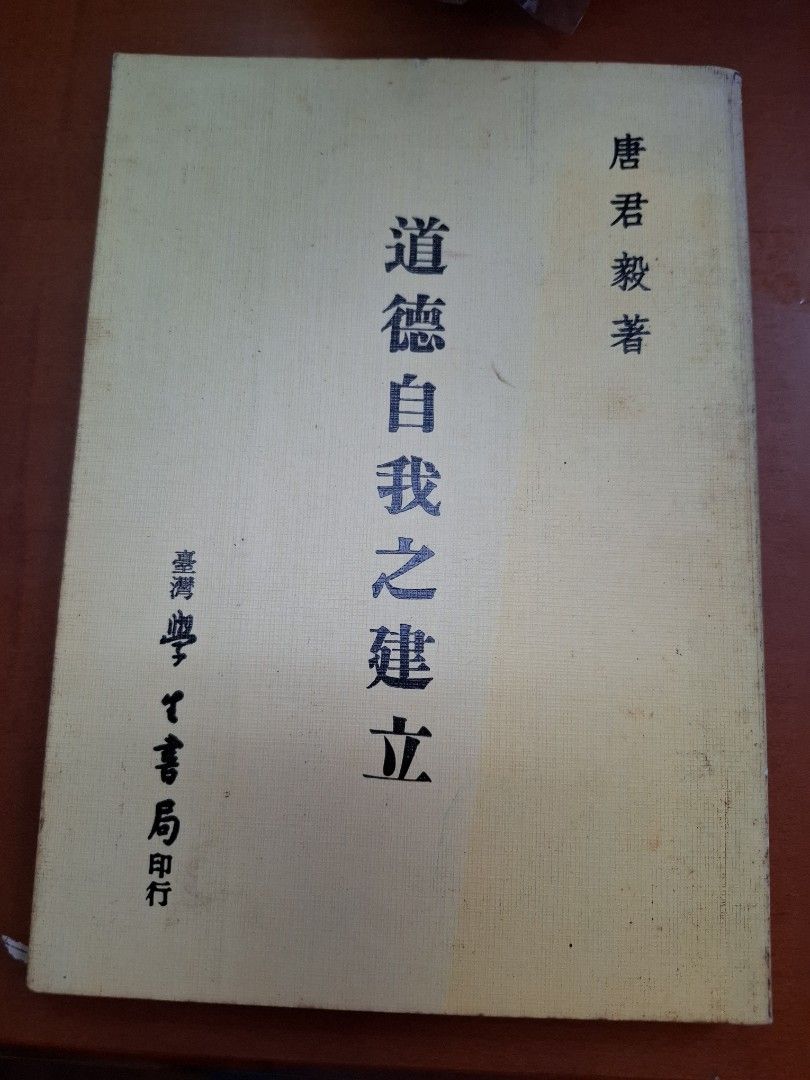 唐君毅著
道德自我之建立
臺灣學生書局印行